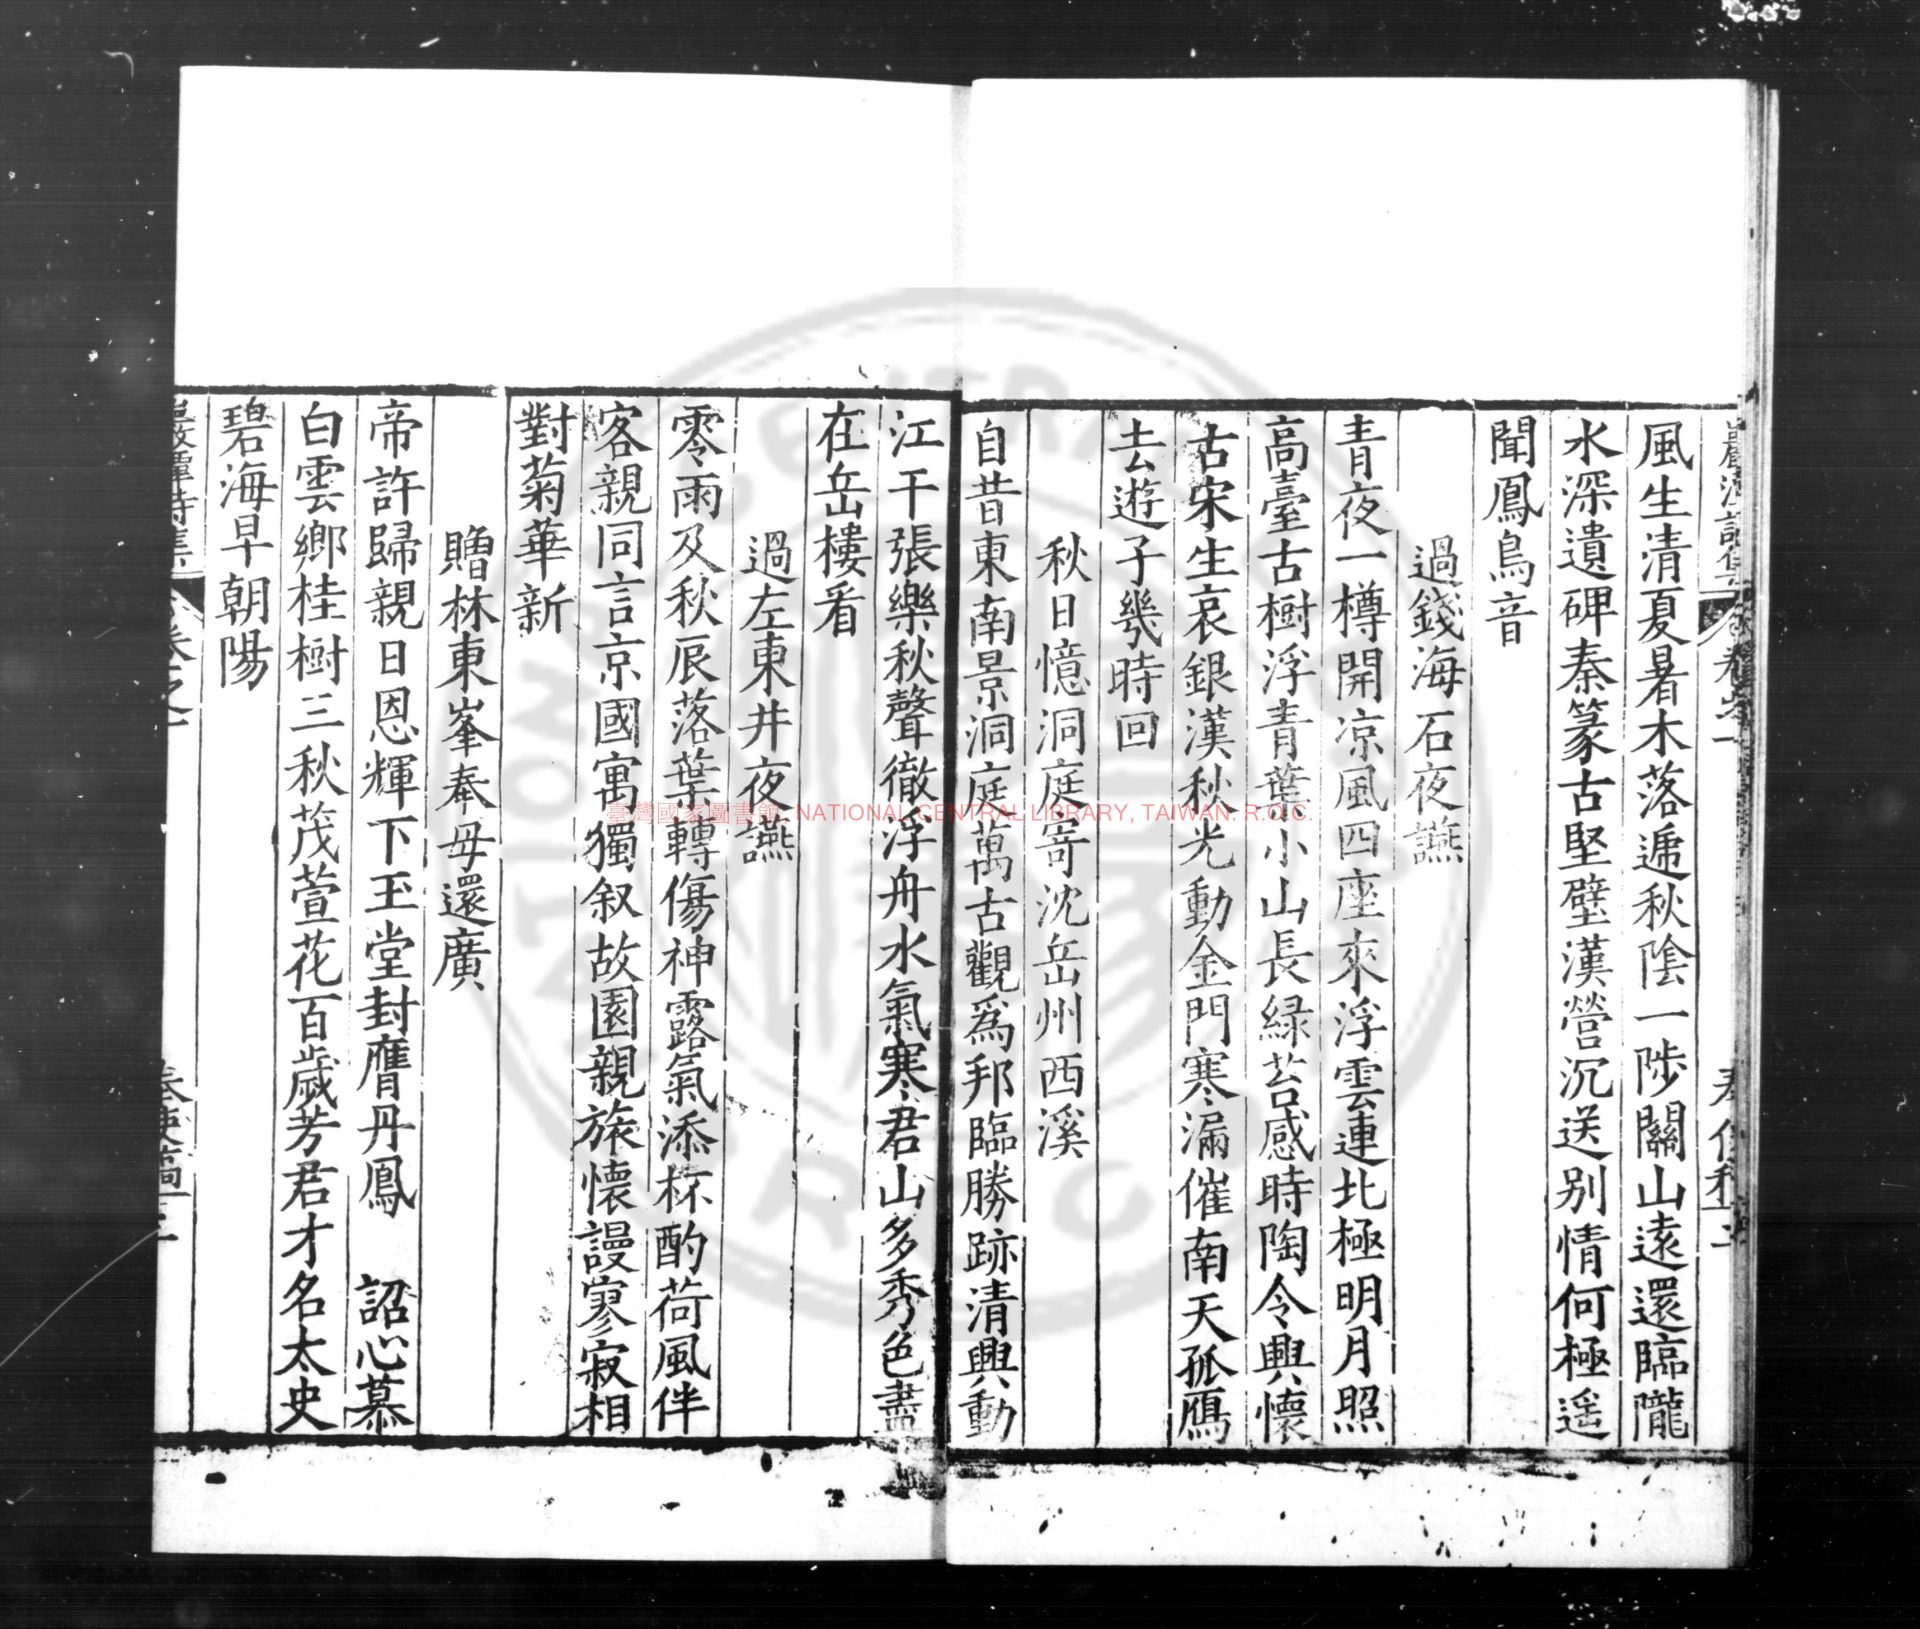 風生清夏暑木落遞秋陰一陟關山遠還臨隴
水深遺碑秦篆古堅壁漢營沉送别情何極遥
聞鳳鳥音
過錢海石夜讌
青夜一樽開凉風四座來浮雲連北極明月照
高臺古樹浮青葉小山長緑苔感時陶令興懷
古宋生哀銀漢秋光動金門寒漏催南天孤鴈
去遊子幾時回
秋日憶洞庭寄沈岳州西溪
自昔東南景洞庭萬古觀爲邦臨勝跡清興動
江干張樂秋聲徹浮舟水氣寒君山多秀色盡
在岳樓看
過左東井夜讌
零雨及秋辰落葉轉傷神露氣添杯酌荷風伴
客親同言京國寓獨叙故園親旅懷謾寥寂相
對菊華新
贈林東峯奉母還廣
帝許歸親日恩輝下玉堂封膺丹鳳 詔心慕
白雲鄉桂樹三秋茂萱花百歲芳君才名太史
碧海早朝陽
臺灣國家圖書館, NATIONAL CENTRAL LIBRARY, TAIWAN. R.O.C.